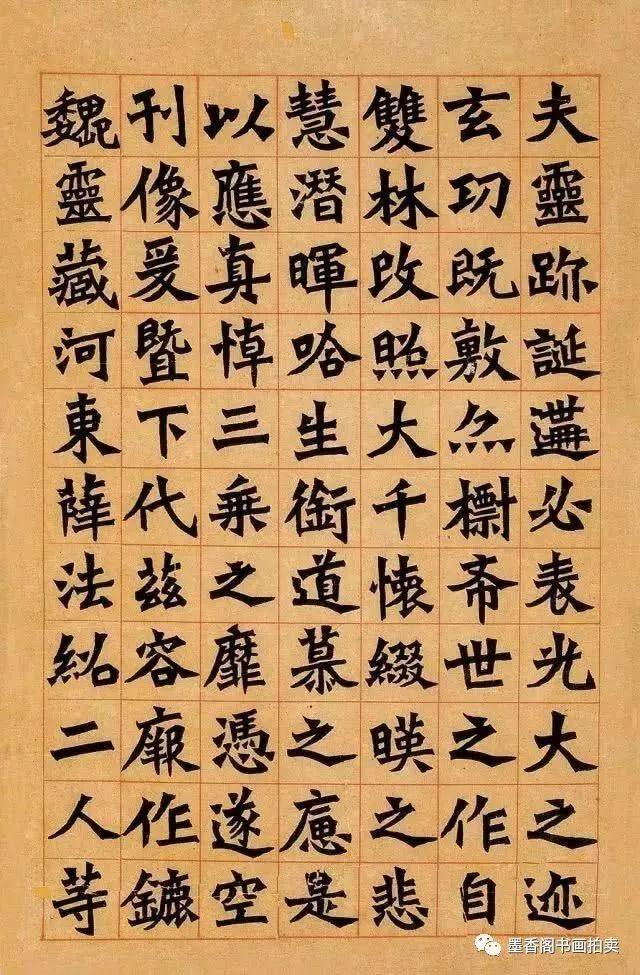 夫靈跡誕遘必表光大之迹
玄功既敷亦標希世之作自
雙林改照大千懷綴暎之悲
慧潛暉唅生銜道慕之𢠢是
以應真悼三乘之靡憑遂空
刊像爰暨下代茲容廄作鑣
魏靈藏河東薛法紹二人等
墨香阁书画拍卖